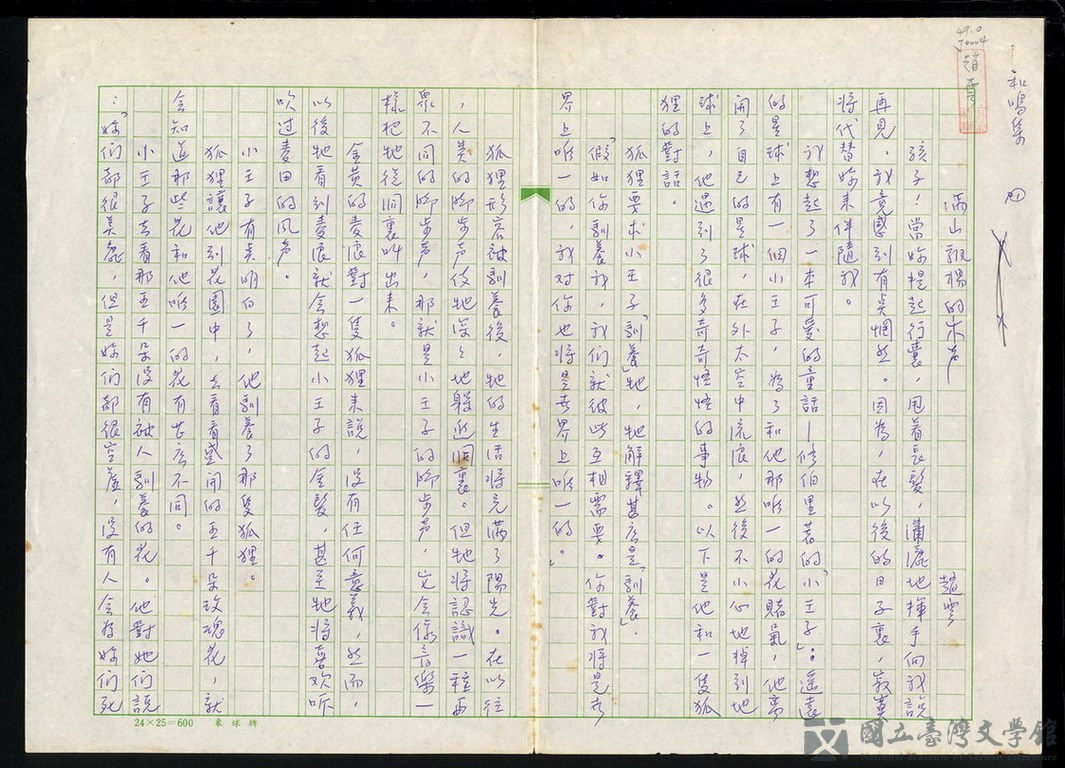 和鳴集
趙雲
滿山飄揚的木聲
趙雲
孩子!當妳提起行囊,甩着長髮,瀟灑地揮手向我說
再見,我竟感到有点惘然。因為,在以後的日子裏,寂寞
將代替妳來伴隨我。
我想起了一本可愛的童話—修伯里著的「小王子」:遙遠
的星球上有一個小王子,為了和他那唯一的花賭氣,他離
開了自己的星球,在外太空中流浪,然後不小心地掉到地
球上,他遇到了很多奇奇怪怪的事物。以下是他和一隻狐
狸的對話。
狐狸要求小王子「訓養」牠,牠解釋甚広是「訓養」。
「假如你訓養我,我们就彼此互相需要。你對我將是世
界上唯一的,我对你也將是世界上唯一的。」
狐狸形容被訓養後,牠的生活將充滿了陽光。在以往
,人类的脚步声使牠深深地躲進洞裏。但牠將認識一種與
眾不同的脚步声,那就是小王子的脚步声,它会像音樂一
樣把牠從洞裏叫出來。
金黃的麦浪對一隻狐狸來說,沒有任何意義,然而,
以後牠看到麦浪就会想起小王子的金髮,甚至牠將喜欢听
吹过麦田的风声。
小王子有点明白了,他訓養了那隻狐狸。
狐狸讓他到花園中,去看看盛開的五千朵玫瑰花,就
会知道那些花和他唯一的花有甚広不同。
小王子去看那五千朵沒有被人訓養的花。他對她们說
:「妳们都很美麗,但是妳们都很空虛,沒有人会为妳们死
24×25=600 象球牌
國立臺灣文學館